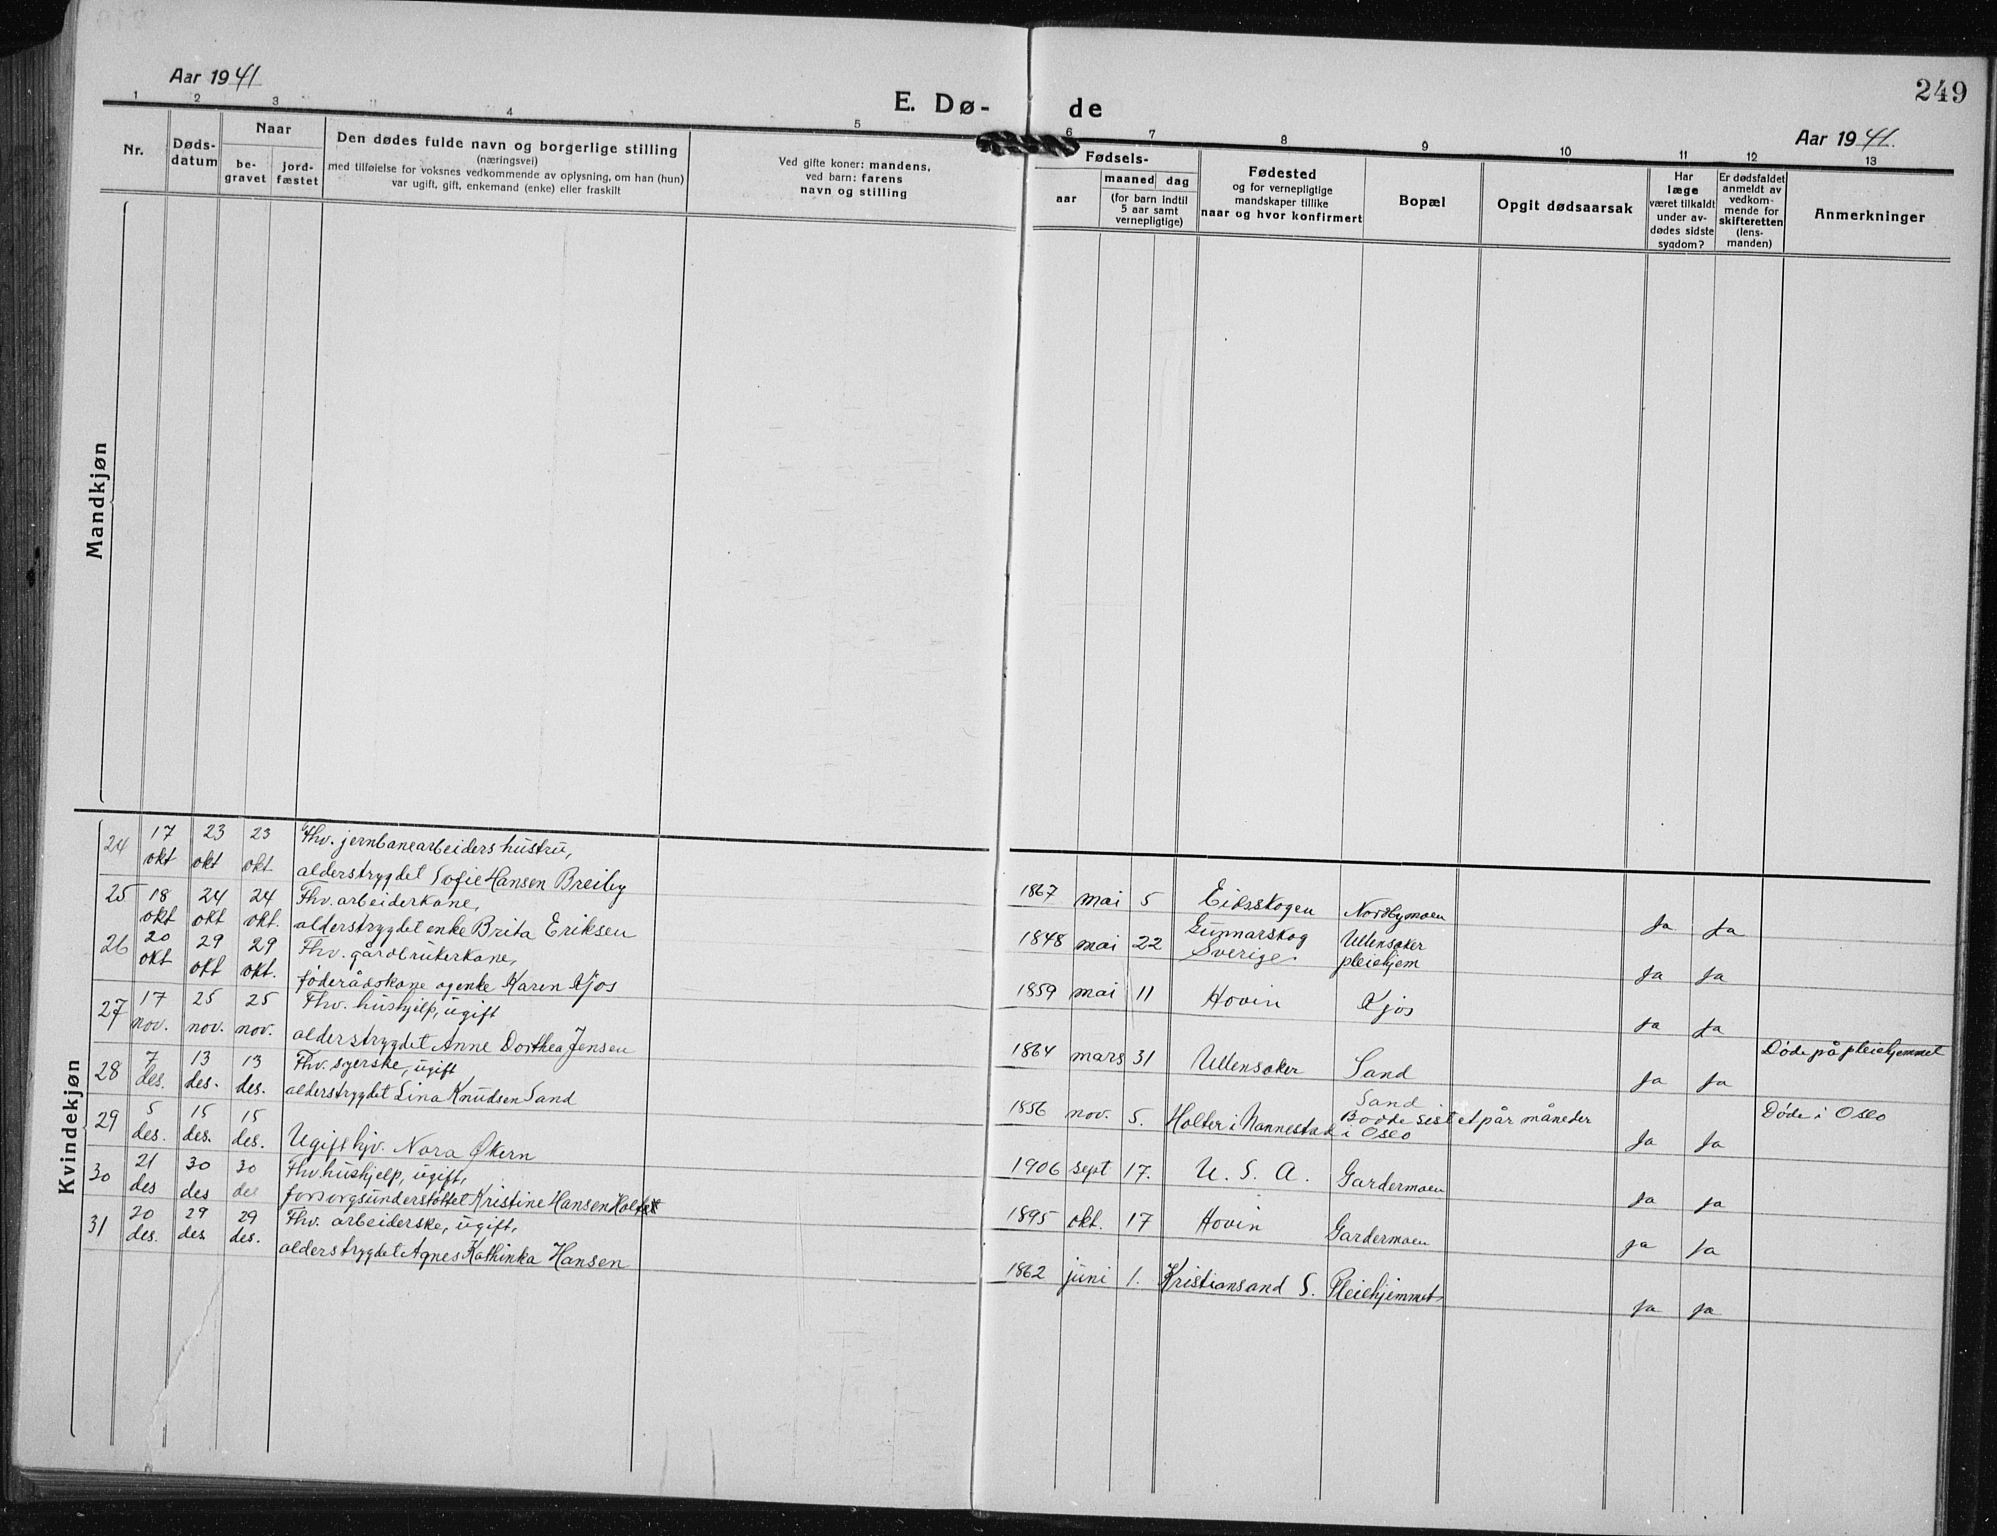 249
Aar 1941
E. Dø- de
Aar 1941.
1 2 3 4 5 6 7 8 9 10 11 12 13
Nr.
Døds-
datum
Naar
be-
gravet
jord-
fæstet
Den dødes fulde navn og borgerlige stilling
(næringsvei)
med tilføielse for voksnes vedkommende av oplysning, om han (hun)
var ugift, gift, enkemand (enke) eller fraskilt
Ved gifte koner: mandens,
ved barn: farens
navn og stilling
Fødsels-
aar
maaned dag
(for barn indtil
5 aar samt
vernepligtige)
Fødested
og for vernepligtige
mandskaper tillike
naar og hvor konfirmert
Bopæl
Opgit dødsaarsak
Har
læge
været tilkaldt
under av-
dødes sidste
sygdom?
Er dødsfaldet
anmeldt av
vedkom-
mende for
skifteretten
(lens-
manden)
Anmerkninger
Mandkjøn
Kvindekjøn
24 17 okt 23 okt 23 okt Fhv. jernbanearbeiders hustru,
alderstrygdet Sofie Hansen Breiby 1867 mai 5 Eidsskogen Nordbymoen Ja Ja
25 18 okt 24 okt 24 okt. Fhv. arbeiderkone,
alderstrygdet enke Brita Eriksen 1848 mai 22 Gunnarskog Sverige. Ullensaker pleiehjem Ja Ja
26 20 okt 29 okt 29 okt. Fhv. gårdbrukerkone,
føderådskone og enke Karen Kjos 1859 mai 11 Hovin Kjos Ja Ja
27 17 nov. 25 nov. 25 nov. Fhv. hushjelp, ugift
alderstrygdet Anne Dorthea Jensen 1864 mars 31 Ullensaker Sand Ja Ja Døde på pleiehjemmet
28 7 des. 13 des. 13 des. Fhv. syerske, ugift
alderstrygdet Lina Knudsen Sand 1856 nov. 5. Holter i Nannestad Sand
Bodde sist et pår måneder
i Oslo Ja Ja Døde i Oslo
29 5 des. 15 des. 15 des.
Ugift hjv. Nora Økern 1906 sept 17. U. S. A. Gardermoen Ja Ja
30 21 des 30 des 30 des Fhv hushjelp, ugift,
forsorgsunderstøttet Kristine Hansen 1895 okt. 17 Hovin Gardermoen Ja Ja
31 20 des. 29 des 29 des. Fhv. arbeiderske, ugift,
alderstrygdet Agnes Kathinka Hansen 1862 juni 1. Kristiansand S. Pleiehjemmet Ja Ja